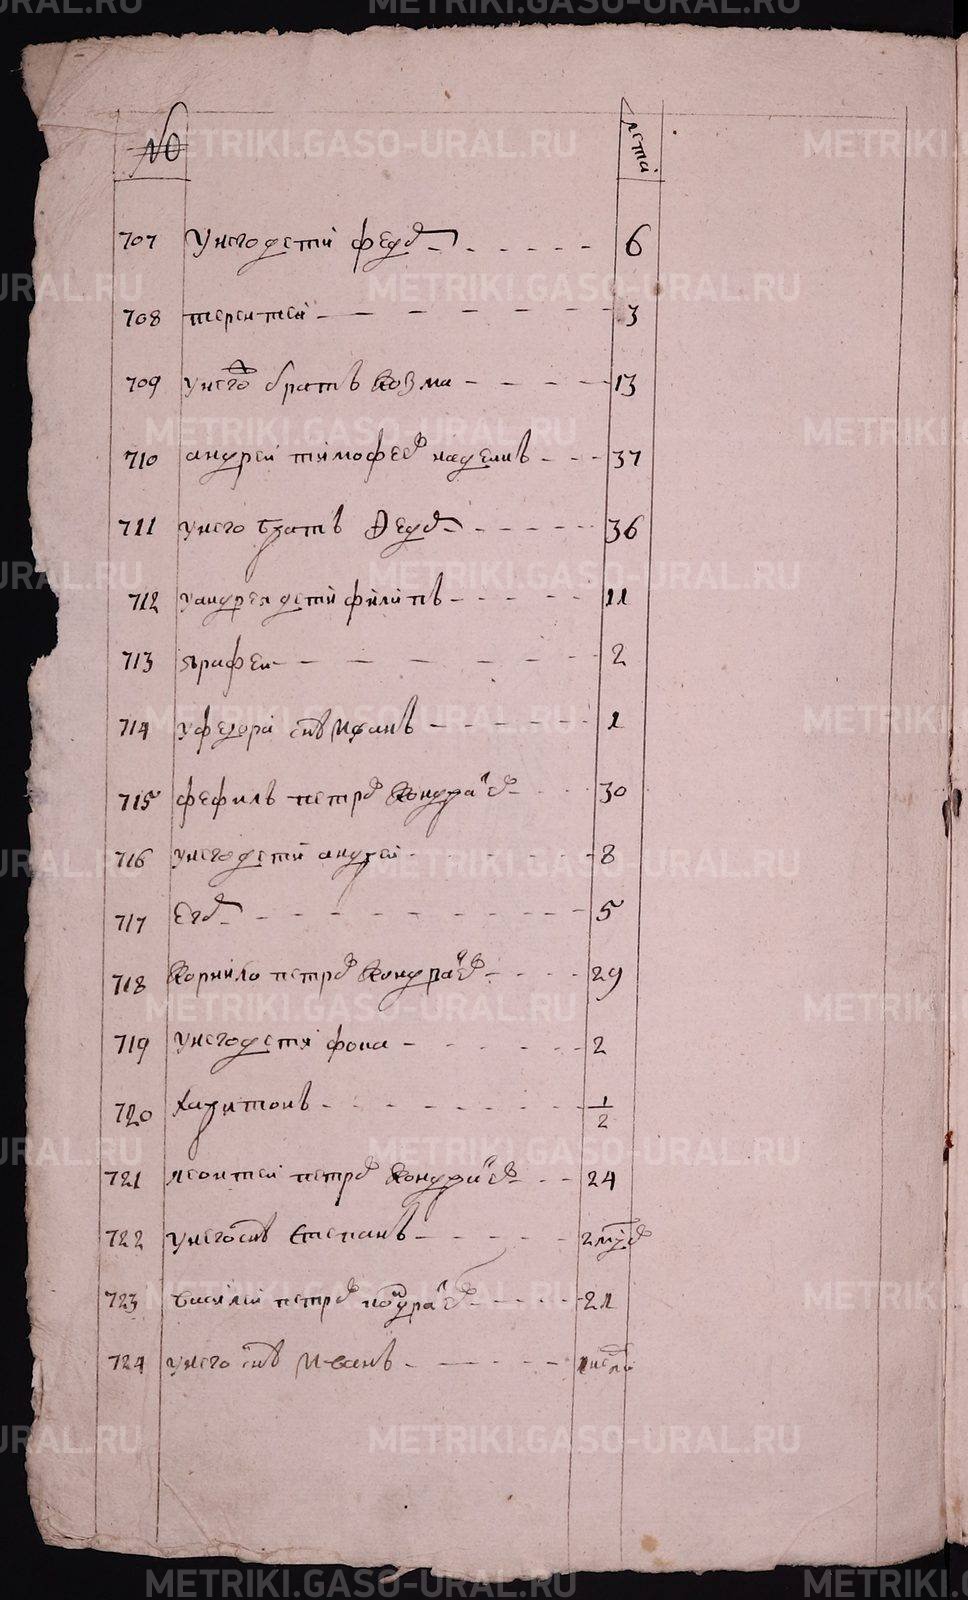 № лета
707 У него дети федор 6
708 терентей 3
709 у него братъ козма 13
710 андрей тимофеев 37
711 у него братъ федор 36
712 у андрея дети филипъ 11
713 2
714 у федора снъ иванъ 1
715 фефилъ петров кондратев 30
716 у него дети андрей 8
717 Егор 5
718 корнило петров кондратев 29
719 у него дети фока 2
720 харитонъ 1/2
721 леонтей петров кондратев 24
722 у него снъ степанъ 2
723 василей петров кондратев 21
724 у него снъ иванъ
METRIKI.GASO-URAL.RU